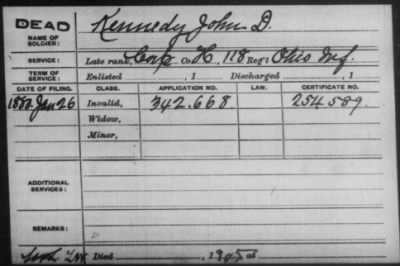 DEAD
NAME OF SOLDIER: Kennedy John D.
SERVICE: Late rank, Corp Co. H, 118 Reg't Ohio Inf.
TERM OF SERVICE: Enlisted , 1 Discharged , 1
DATE OF FILING. CLASS. APPLICATION NO. LAW. CERTIFICATE NO.
Jan 26 Invalid, 342.668 254589.
Widow,
Minor,
ADDITIONAL SERVICES:
REMARKS:
Died , 1905 at